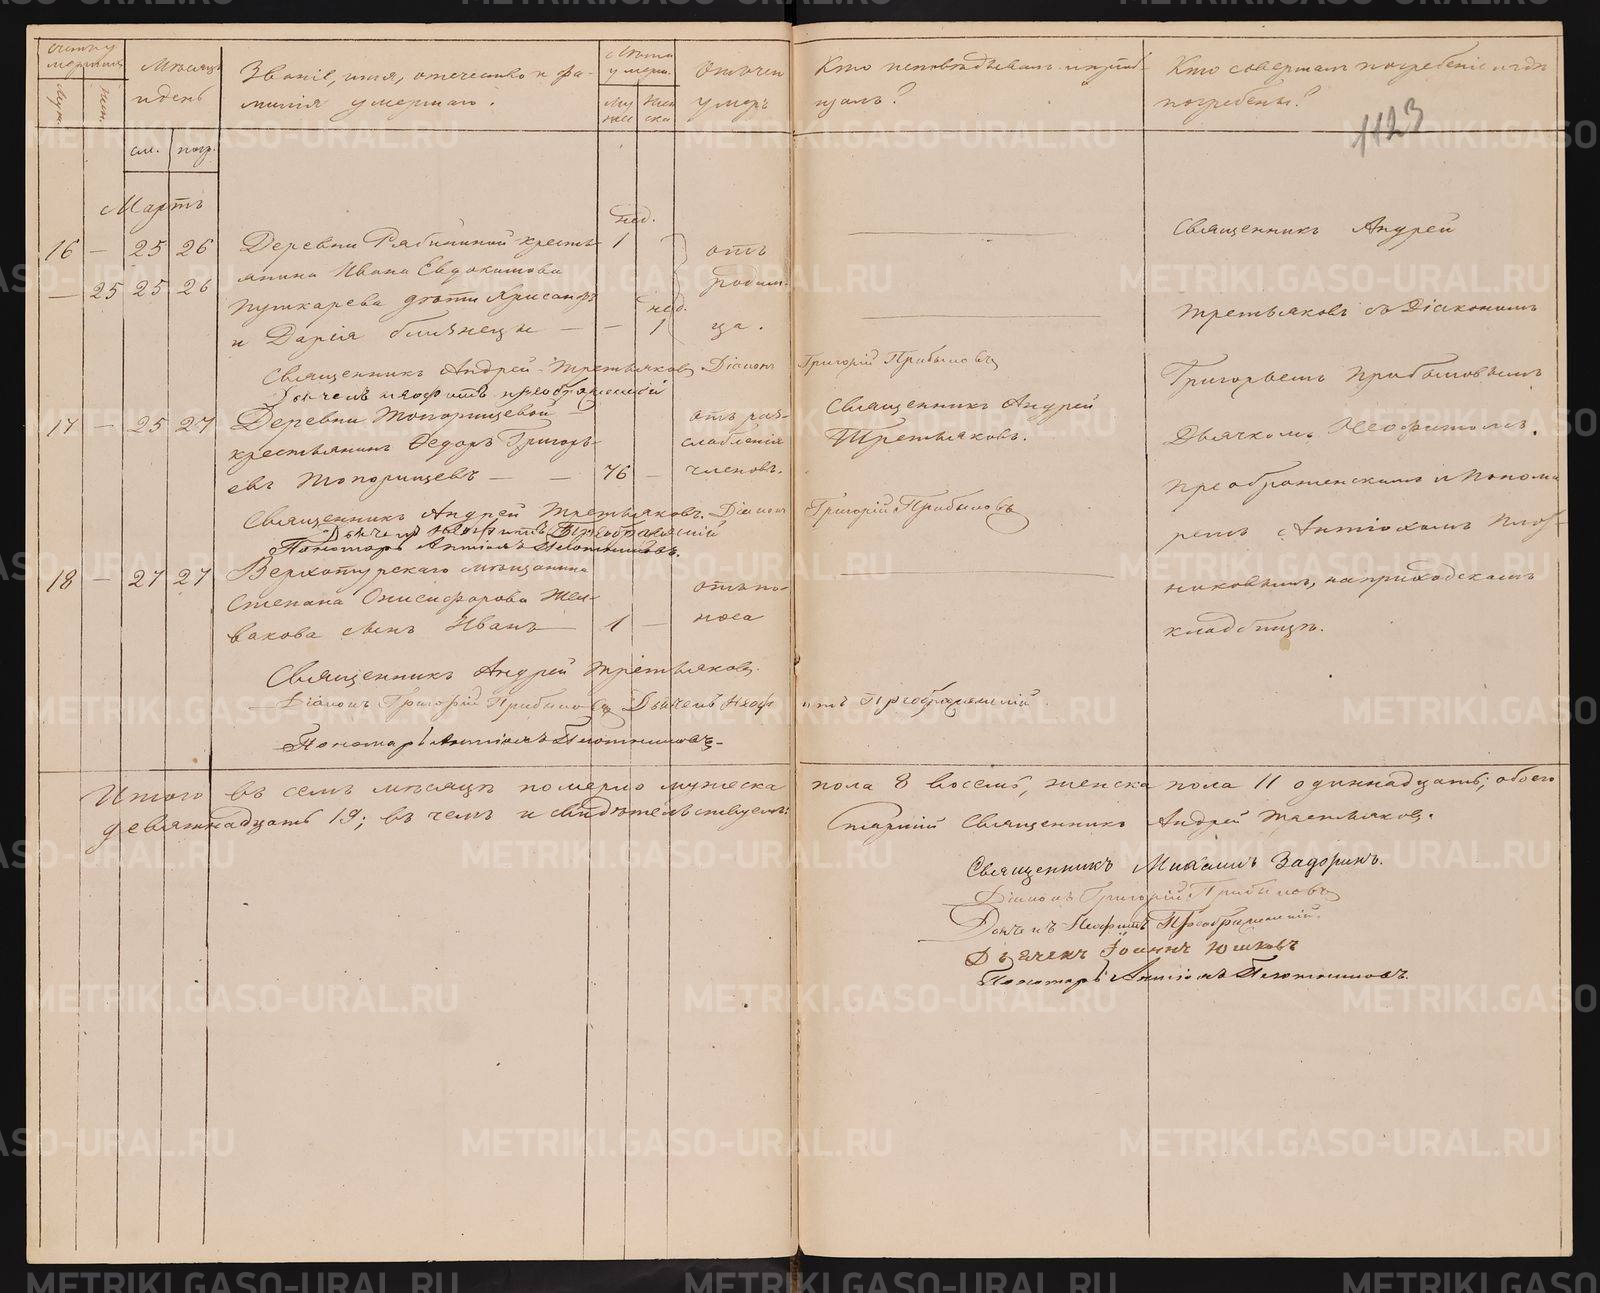 Счетъ умершихъ
Муж.
Жен.
Мѣсяцъ и день
см.
погр.
Званіе, имя, отечество и фа-
милія умершаго.
Лѣта умерш.
Муж
Жен
ска
Отъ чего
умеръ
Кто исповѣдывалъ и пріоб-
щалъ?
Кто совершалъ погребеніе и гдѣ
погребены?
1123
Мартъ
16 — 25 26 Деревни Рябининой кресть-
янина Ивана Евдокимова
— 25 25 26
Пушкарева дѣти Хрисанфъ
и Дарія близнецы — —
нед.
1
нед.
1
отъ
родим-
ца.
Священникъ Андрей Третьяковъ Діаконъ Григорій Прибыловъ
Дьячекъ Неофитъ Преображенскій
17 — 25 27 Деревни Топорищевой
крестьянинъ Ѳедоръ Григорь-
евъ Топорищевъ — — 76 —
отъ раз-
слабленія
членовъ.
Священникъ Андрей
Третьяковъ.
Священникъ Андрей Третьяковъ. Діаконъ Григорій Прибыловъ
Дьячекъ Неофитъ Преображенскій
Пономарь Антіохъ Плотниковъ.
18 — 27 27 Верхотурскаго мѣщанина
Степана Онисифорова Жел-
вакова сынъ Иванъ — 1 —
отъ по-
носа
Священникъ Андрей Третьяковъ.
Діаконъ Григорій Прибыловъ Дьячекъ Неофитъ Преображенскій
Пономарь Антіохъ Плотниковъ
Священникъ Андрей
Третьяковъ съ Діакономъ
Григорьемъ Прибыловымъ
Дьячкомъ Неофитомъ
Преображенскимъ и Понома
ремъ Антіохомъ Плот-
никовымъ, на приходскомъ
кладбищѣ.
Итого въ семъ мѣсяцѣ померло мужеска пола 8 восемь, женска пола 11 одиннадцать; обоего
девятнадцать 19; въ чемъ и свидѣтельствуемъ: Старшій Священникъ Андрей Третьяковъ.
Священникъ Михаилъ Задоринъ.
Діаконъ Григорій Прибыловъ
Дьячекъ Неофитъ Преображенскій.
Дьячекъ Іоаннъ Юшковъ
Пономарь Антіохъ Плотниковъ.
METRIKI.GASO-URAL.RU